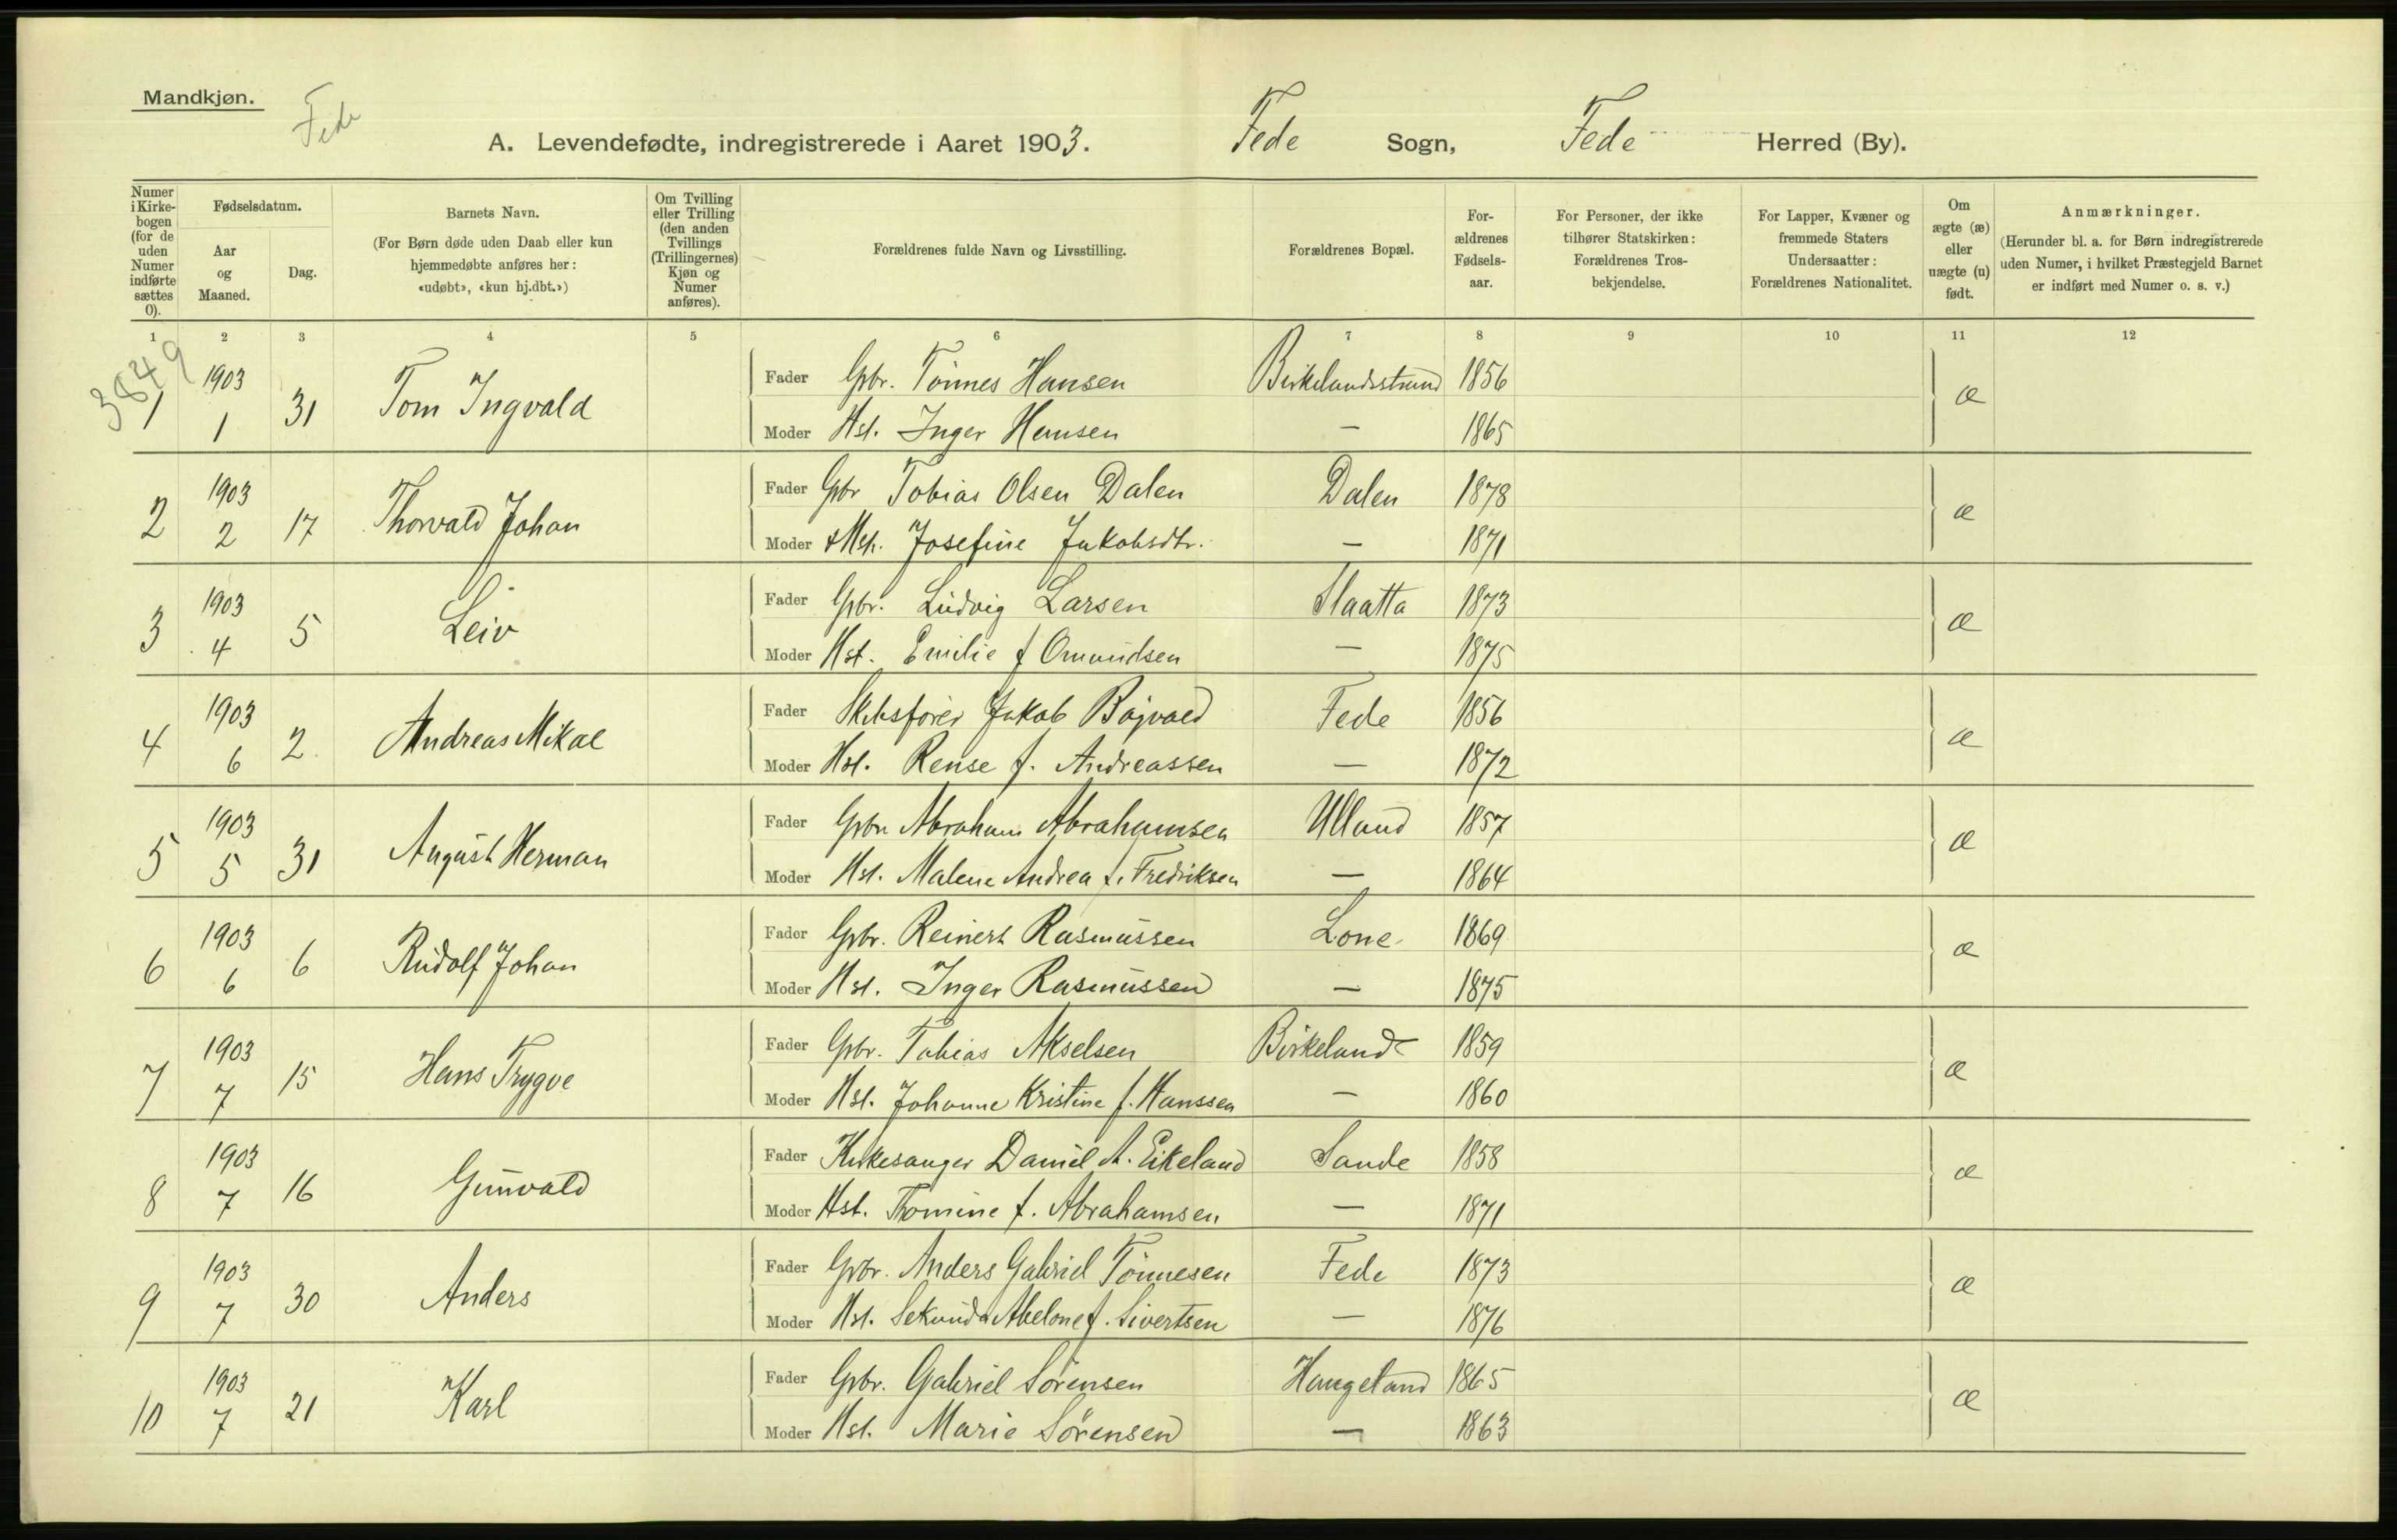 Mandkjøn.
Fede
A. Levendefødte, indregistrerede i Aaret 1903. Fede Sogn, Fede Herred (By).
Numer i Kirkebogen (for de uden Numer indførte sættes 0).
Fødselsdatum.
Aar og Maaned.
Dag.
Barnets Navn.
(For Børn døde uden Daab eller kun hjemmedøbte anføres her: «udøbt», «kun hj.dbt.»)
Om Tvilling eller Trilling (den anden Tvillings (Trillingernes) Kjøn og Numer anføres).
Forældrenes fulde Navn og Livsstilling.
Forældrenes Bopæl.
Forældrenes Fødselsaar.
For Personer, der ikke tilhører Statskirken: Forældrenes Trosbekjendelse.
For Lapper, Kvæner og fremmede Staters Undersaatter: Forældrenes Nationalitet.
Om ægte (æ) eller uægte (u) født.
Anmærkninger.
(Herunder bl. a. for Børn indregistrerede uden Numer, i hvilket Præstegjeld Barnet er indført med Numer o. s. v.)
1 2 3 4 5 6 7 8 9 10 11 12
3849
1 1903 1 31 Tom Ingvald Fader Gbr. Tönnes Hansen Birkelandsstrand 1856 æ
Moder Hst. Inger Hansen — 1865
2 1903 2 17 Thorvald Johan Fader Gbr Tobias Olsen Dalen Dalen 1878 æ
Moder Hst. Josefine Jakobsdtr. — 1871
3 1903 4 5 Leiv Fader Gbr. Ludvig Larsen Slaatta 1873 æ
Moder Hst. Emilie f Omundsen — 1875
4 1903 6 2 Andreas Mikal Fader Skibsförer Jakob Fede 1856 æ
Moder Hst. Rense f. Andreassen — 1872
5 1903 5 31 August Herman Fader Gbr Abraham Abrahamsen Ulland 1857 æ
Moder Hst. Malene Andrea f. Fredriksen — 1864
6 1903 6 6 Rudolf Johan Fader Gbr. Reinert Rasmussen Lone 1869 æ
Moder Hst. Inger Rasmussen — 1875
7 1903 7 15 Hans Trygve Fader Gbr. Tobias Akselsen Birkeland 1859 æ
Moder Hst. Johanne Kristine f. Hanssen — 1860
8 1903 7 16 Gunvald Fader Kirkesanger Daniel A. Eikeland Sande 1858 æ
Moder Hst. Tomine f. Abrahamsen — 1871
9 1903 7 30 Anders Fader Gbr. Anders Gabriel Tönnesen Fede 1873 æ
Moder Hst. Sekunda Abelone f. Sivertsen — 1876
10 1903 7 21 Karl Fader Gbr. Gabriel Sörensen Haugeland 1865 æ
Moder Hst. Marie Sörensen — 1863